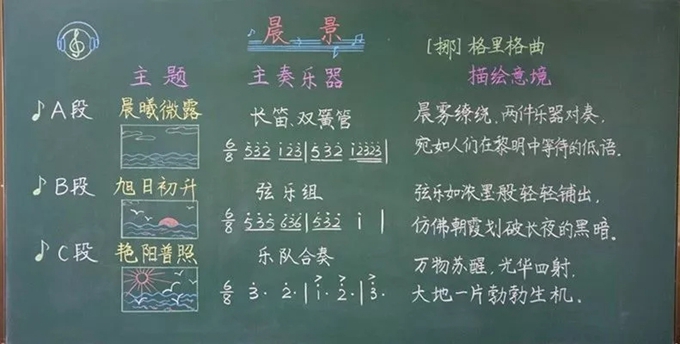 晨景
[挪]格里格曲
主题 主奏乐器 描绘意境
A段 晨曦微露 长笛、双簧管 晨雾缭绕，两件乐器对奏，
6/8 532 123 | 532 12323 宛如人们在黎明中等待的低语。
B段 旭日初升 弦乐组 弦乐如浓墨般轻轻铺出，
6/8 535 636 | 532 1 | 仿佛朝霞划破长夜的黑暗。
C段 艳阳普照 乐队合奏 万物苏醒，光华四射，
6/8 3· 2· | 1· 2· | 3· 大地一片勃勃生机。